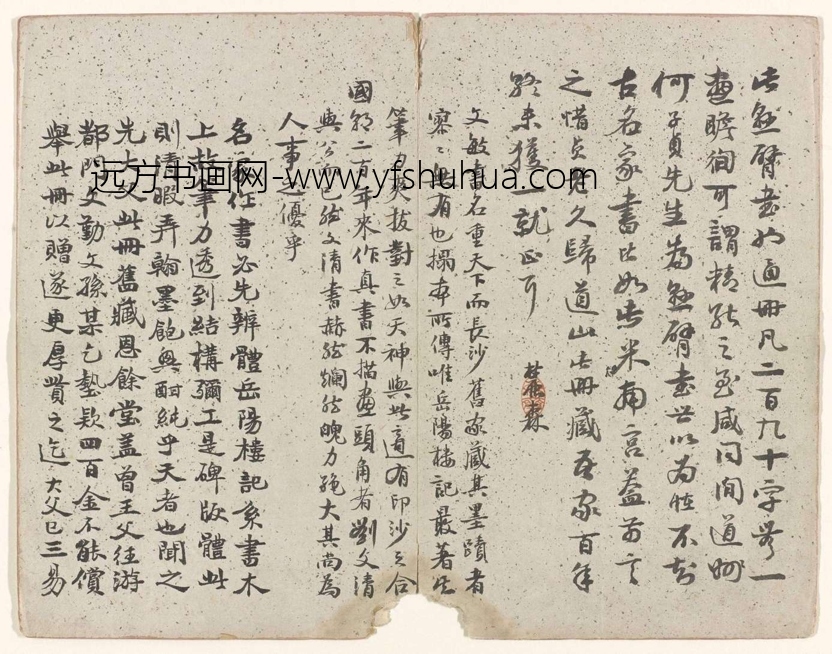 此懸臂書通冊凡二百九十字無一
畫瞻徇可謂精能之至咸同間道州
何子貞先生為懸臂書世以為怪不知
古名家書皆如此米南宮蓋嘗言
之惜貞老久歸道山此冊藏吾家百年
終未獲一就正耳
文敏書名重天下而長沙舊家藏其墨蹟者
寥寥有也搨本所傳唯岳陽樓記最著其
筆英拔對之如天神與此適有印沙之合
國朝二百年來作真書不描畫頭角者劉文清
與公而已然文清書赫然爛然魄力絕大其尚為
人事之優乎
名家作書必先辨體岳陽樓記系書木
上故筆力透到結構彌工是碑版體此
則清暇弄翰墨飽興酣純乎天者也聞之
先大父此冊舊藏恩餘堂蓋曾王父往游
都門文勤文孫某乞墊欵四百金不能償
舉此冊以贈遂更厚貲之迄大父已三易
远方书画网-www.yfshuhua.com